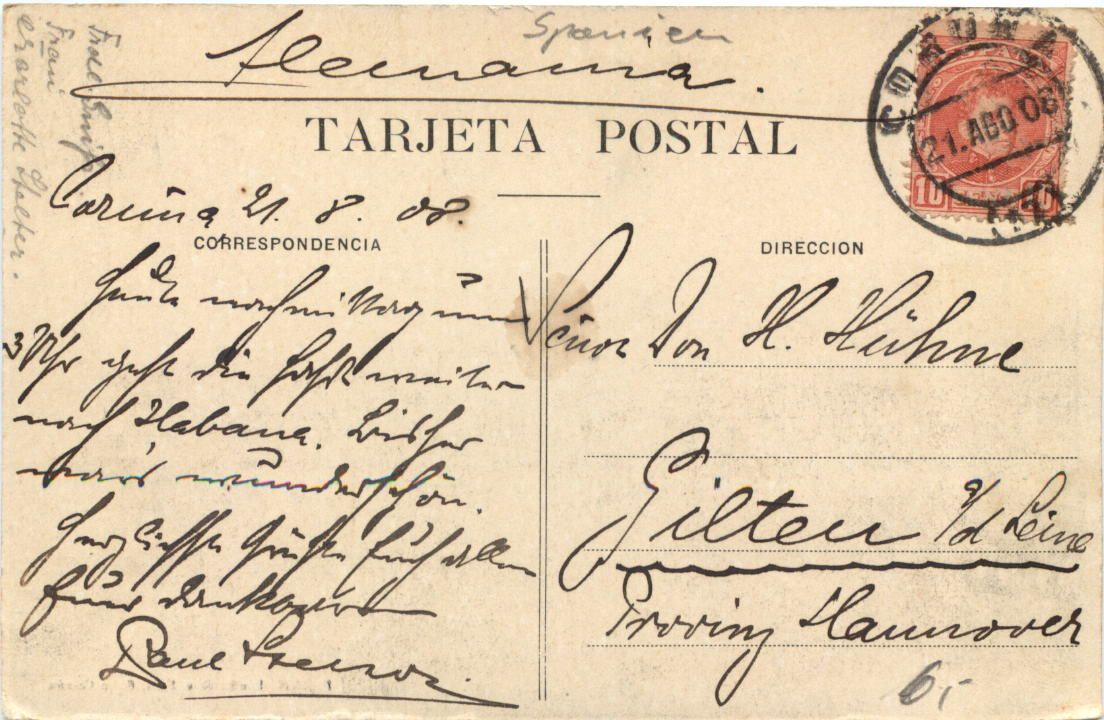 Spanien
Alemania.
TARJETA POSTAL
CORUÑA
21.AGO 08
10 10
Coruña, 21. 8. 08.
CORRESPONDENCIA
DIRECCION
Heute nachmittag um
3 Uhr geht die Fahrt weiter
nach Habana. Bisher
war's wunderschön.
Herzlichste Grüße Euch allen
Euer dankbarer
Paul
Señor Don H. Hühne
Gilten a/d Leine
Provinz Hannover
6,-
Frau
Charlotte